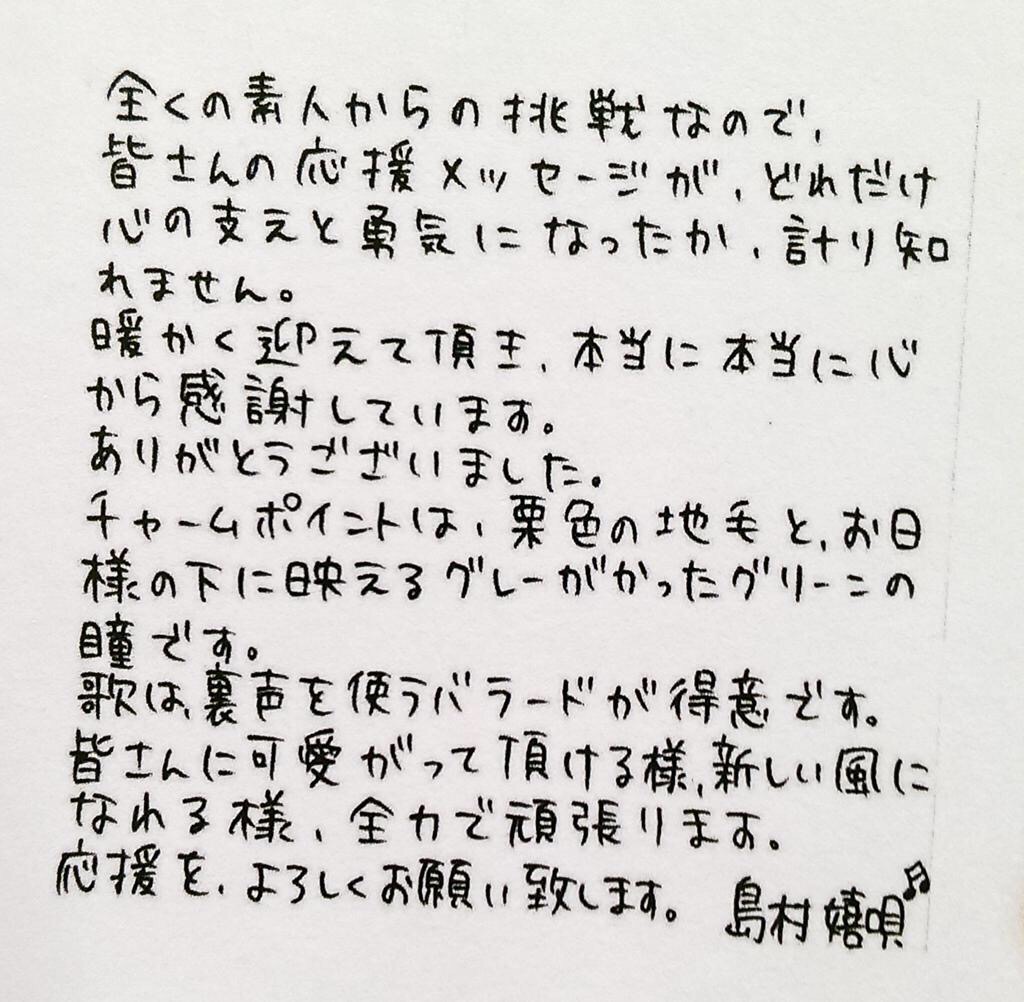 全くの素人からの挑戦なので、
皆さんの応援メッセージが、どれだけ
心の支えと勇気になったか、計り知
れません。
暖かく迎えて頂き、本当に本当に心
から感謝しています。
ありがとうございました。
チャームポイントは、栗色の地毛と、お日
様の下に映えるグレーがかったグリーンの
瞳です。
歌は、裏声を使うバラードが得意です。
皆さんに可愛がって頂ける様、新しい風に
なれる様、全力で頑張ります。
応援を、よろしくお願い致します。 島村嬉唄♬